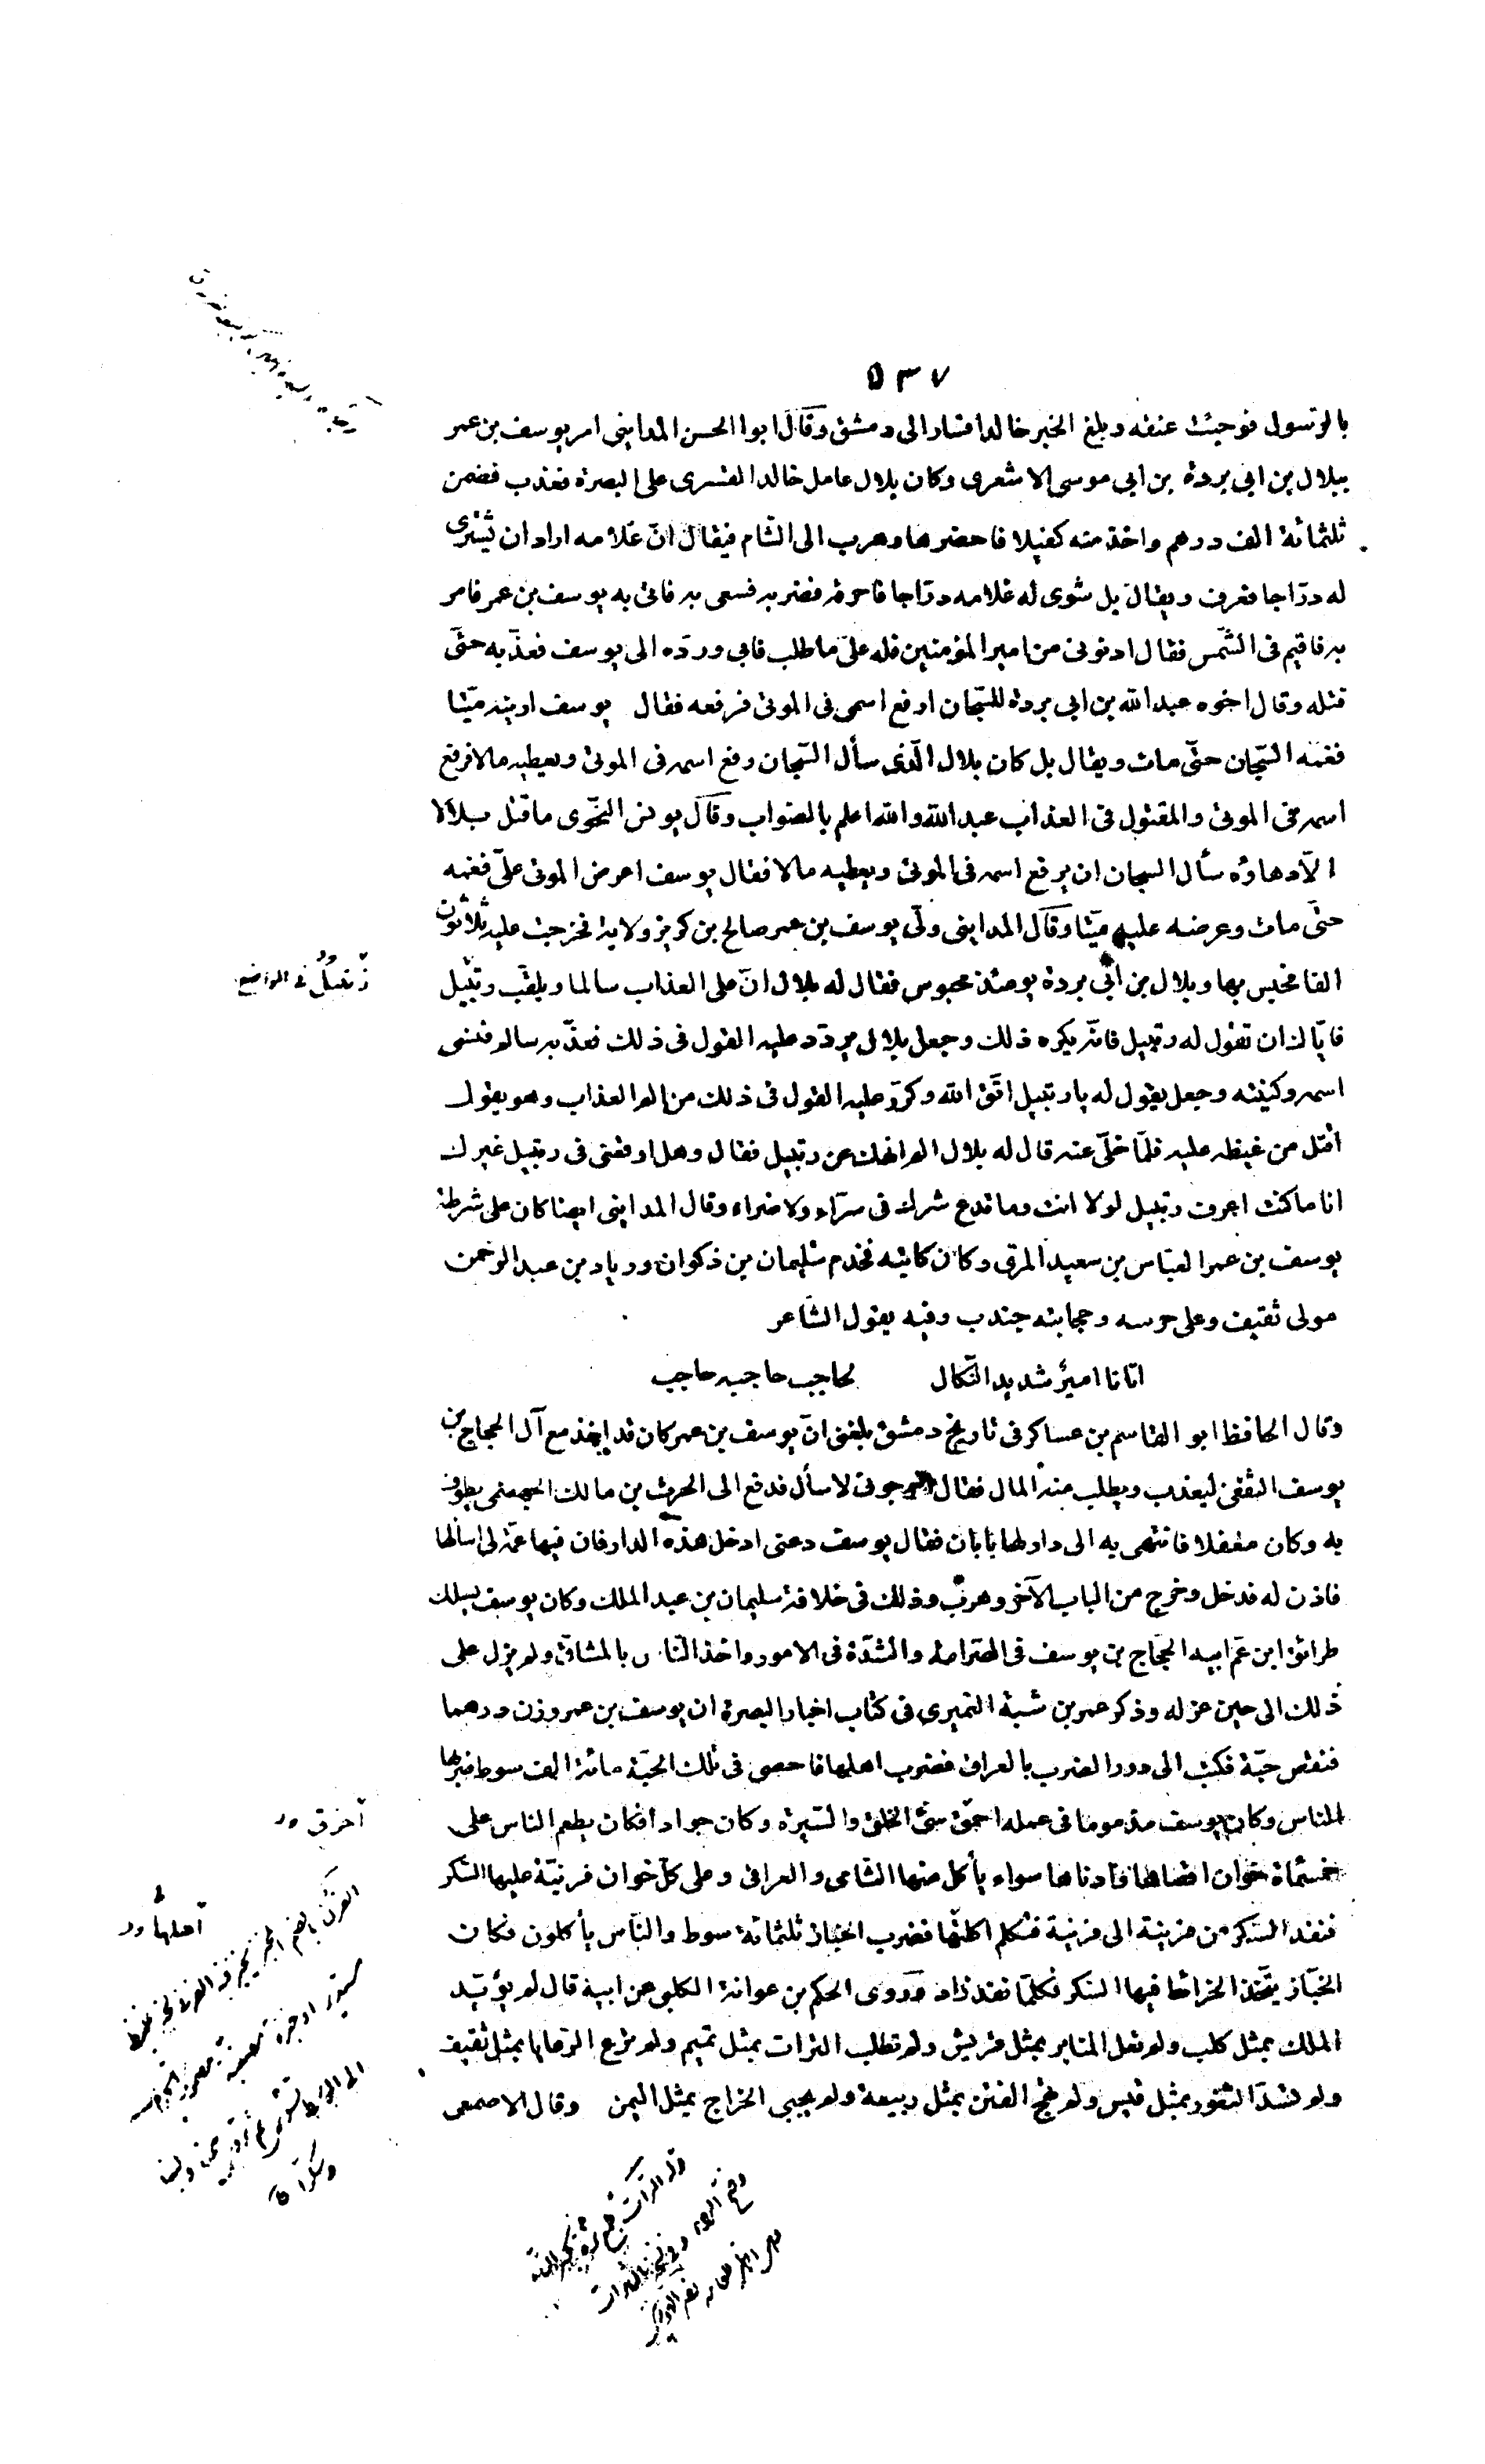 ٥٣٧
بالرسول فوجئت عنقه وبلغ الخبر خالدا فسار الى دمشق وقال ابوا الحسن المدايني امر يوسف بن عمر
ببلال بن ابى بردة بن ابى موسى الاشعرى وكان بلال عامل خالد القسرى على البصرة فعذب فضمن
ثلثمائة الف درهم واخذ منه كفيلا فاحضرها وهرب الى الشام فيقال انّ غلامه اراد ان يشترى
له درّاجا فعرف ويقال بل شوى له غلامه درّاجا فاحرقه فضربه فسعى به فاتى به يوسف بن عمر فامر
به فاقيم فى الشمس فقال ادنونى من امير المؤمنين فله علىّ ما طلب فابى وردّه الى يوسف فعذّبه حتّى
قتله وقال اخوه عبد الله بن ابى بردة للسّجان ارفع اسمى فى الموتى فرفعه فقال يوسف ارنيه ميّتا
فغمه السّجان حتّى مات ويقال بل كان بلال الّذى سأل السّجان رفع اسمه فى الموتى ويعطيه مالا فرفع
اسمه فى الموتى والمقتول فى العذاب عبد الله والله اعلم بالصواب وقال يونس النحوى ما قتل بلالا
الّا دهاؤه سأل السجان ان يرفع اسمه فى الموتى ويعطيه مالا فقال يوسف اعرض الموتى علىّ فغمه
حتّى مات وعرضه عليه ميّتا وقال المداينى ولّى يوسف بن عمر صالح بن كريز ولاية فخرجت عليه ثلاثون
الفا فحبس بها وبلال بن ابى بردة يومئذ محبوس فقال له بلال انّ على العذاب سالما ويلقّب رتبيل
فايّاك ان تقول له رتبيل فانّه يكره ذلك وجعل بلال يردّد عليه القول فى ذلك فعذّبه سالم فنسى
اسمه وكنيته وجعل يقول له يا رتبيل اتّق الله وكرّر عليه القول فى ذلك من الم العذاب وهو يقول
اقتل من غيظه عليه فلمّا خلّى عنه قال له بلال الم انهك عن رتبيل فقال وهل اوقعنى فى رتبيل غيرك
انا ما كنت اعرف رتبيل لولا انت وما تدع شرك فى سرّاء ولا ضراء وقال المداينى ايضا كان على شرطة
يوسف بن عمر العبّاس بن سعيد المرى وكان كاتبه قحذم سليمان بن ذكوان وزياد بن عبد الرحمن
مولى ثقيف وعلى حرسه وحجابته جندب وفيه يقول الشاعر
اتانا امير شديد النّكال لحاجب حاجبه حاجب
وقال الحافظ ابو القاسم بن عساكر فى تاريخ دمشق بلغنى انّ يوسف بن عمر كان قد اخذ مع آل الحجاج بن
يوسف الثقفى ليعذب ويطلب منه المال فقال اخرجونى لاسأل فدفع الى الحرث بن مالك الجهضمى يطوف
به وكان مغفلا فانتهى به الى دار لها بابان فقال يوسف دعنى ادخل هذه الدار فان فيها عمّة لى اسألها
فاذن له فدخل وخرج من الباب الآخر وهرب وذلك فى خلافة سليمان بن عبد الملك وكان يوسف يسلك
طرائق ابن عم ابيه الحجّاج بن يوسف فى الصّرامة والشدّة فى الامور واخذ النّاس بالمشاقّ ولم يزل على
ذلك الى حين عزله وذكر عمر بن شبة النّميرى فى كتاب اخبار البصرة ان يوسف بن عمر وزن درهما
فنقص حبّة فكتب الى دور الضرب بالعراق فضرب اهلها فاحصى فى تلك الحبّة مائة الف سوط ضربها
الناس وكان يوسف مذموما فى عمله احمق سئ الخلق والسّيرة وكان جوادا فكان يطعم الناس على
خمسمائة خوان اقصاها فادناها سواء يأكل منها الشامى والعراقى وعلى كلّ خوان فرنيّة عليها السّكر
فنفد السّكر من فرنيّة الى فرنية فتكلم اكلتها فضرب الخبّاز ثلثمائة سوط والنّاس يأكلون فكان
الخبّاز يتّخذ الخرائط فيها السّكر فكلّما نفد زاد وروى الحكم بن عوانة الكلبى عن ابيه قال لم يؤيّد
الملك بمثل كلب ولم تعل المنابر بمثل قريش ولم تطلب الترات بمثل تميم ولم ترع الرعايا بمثل ثقيف
ولم تسدّ الثغور بمثل قيس ولم تهج الفتن بمثل ربيعة ولم يجبى الخراج بمثل اليمن وقال الاصمعى
زنبيل فى المواضع
اخرق
اهلها